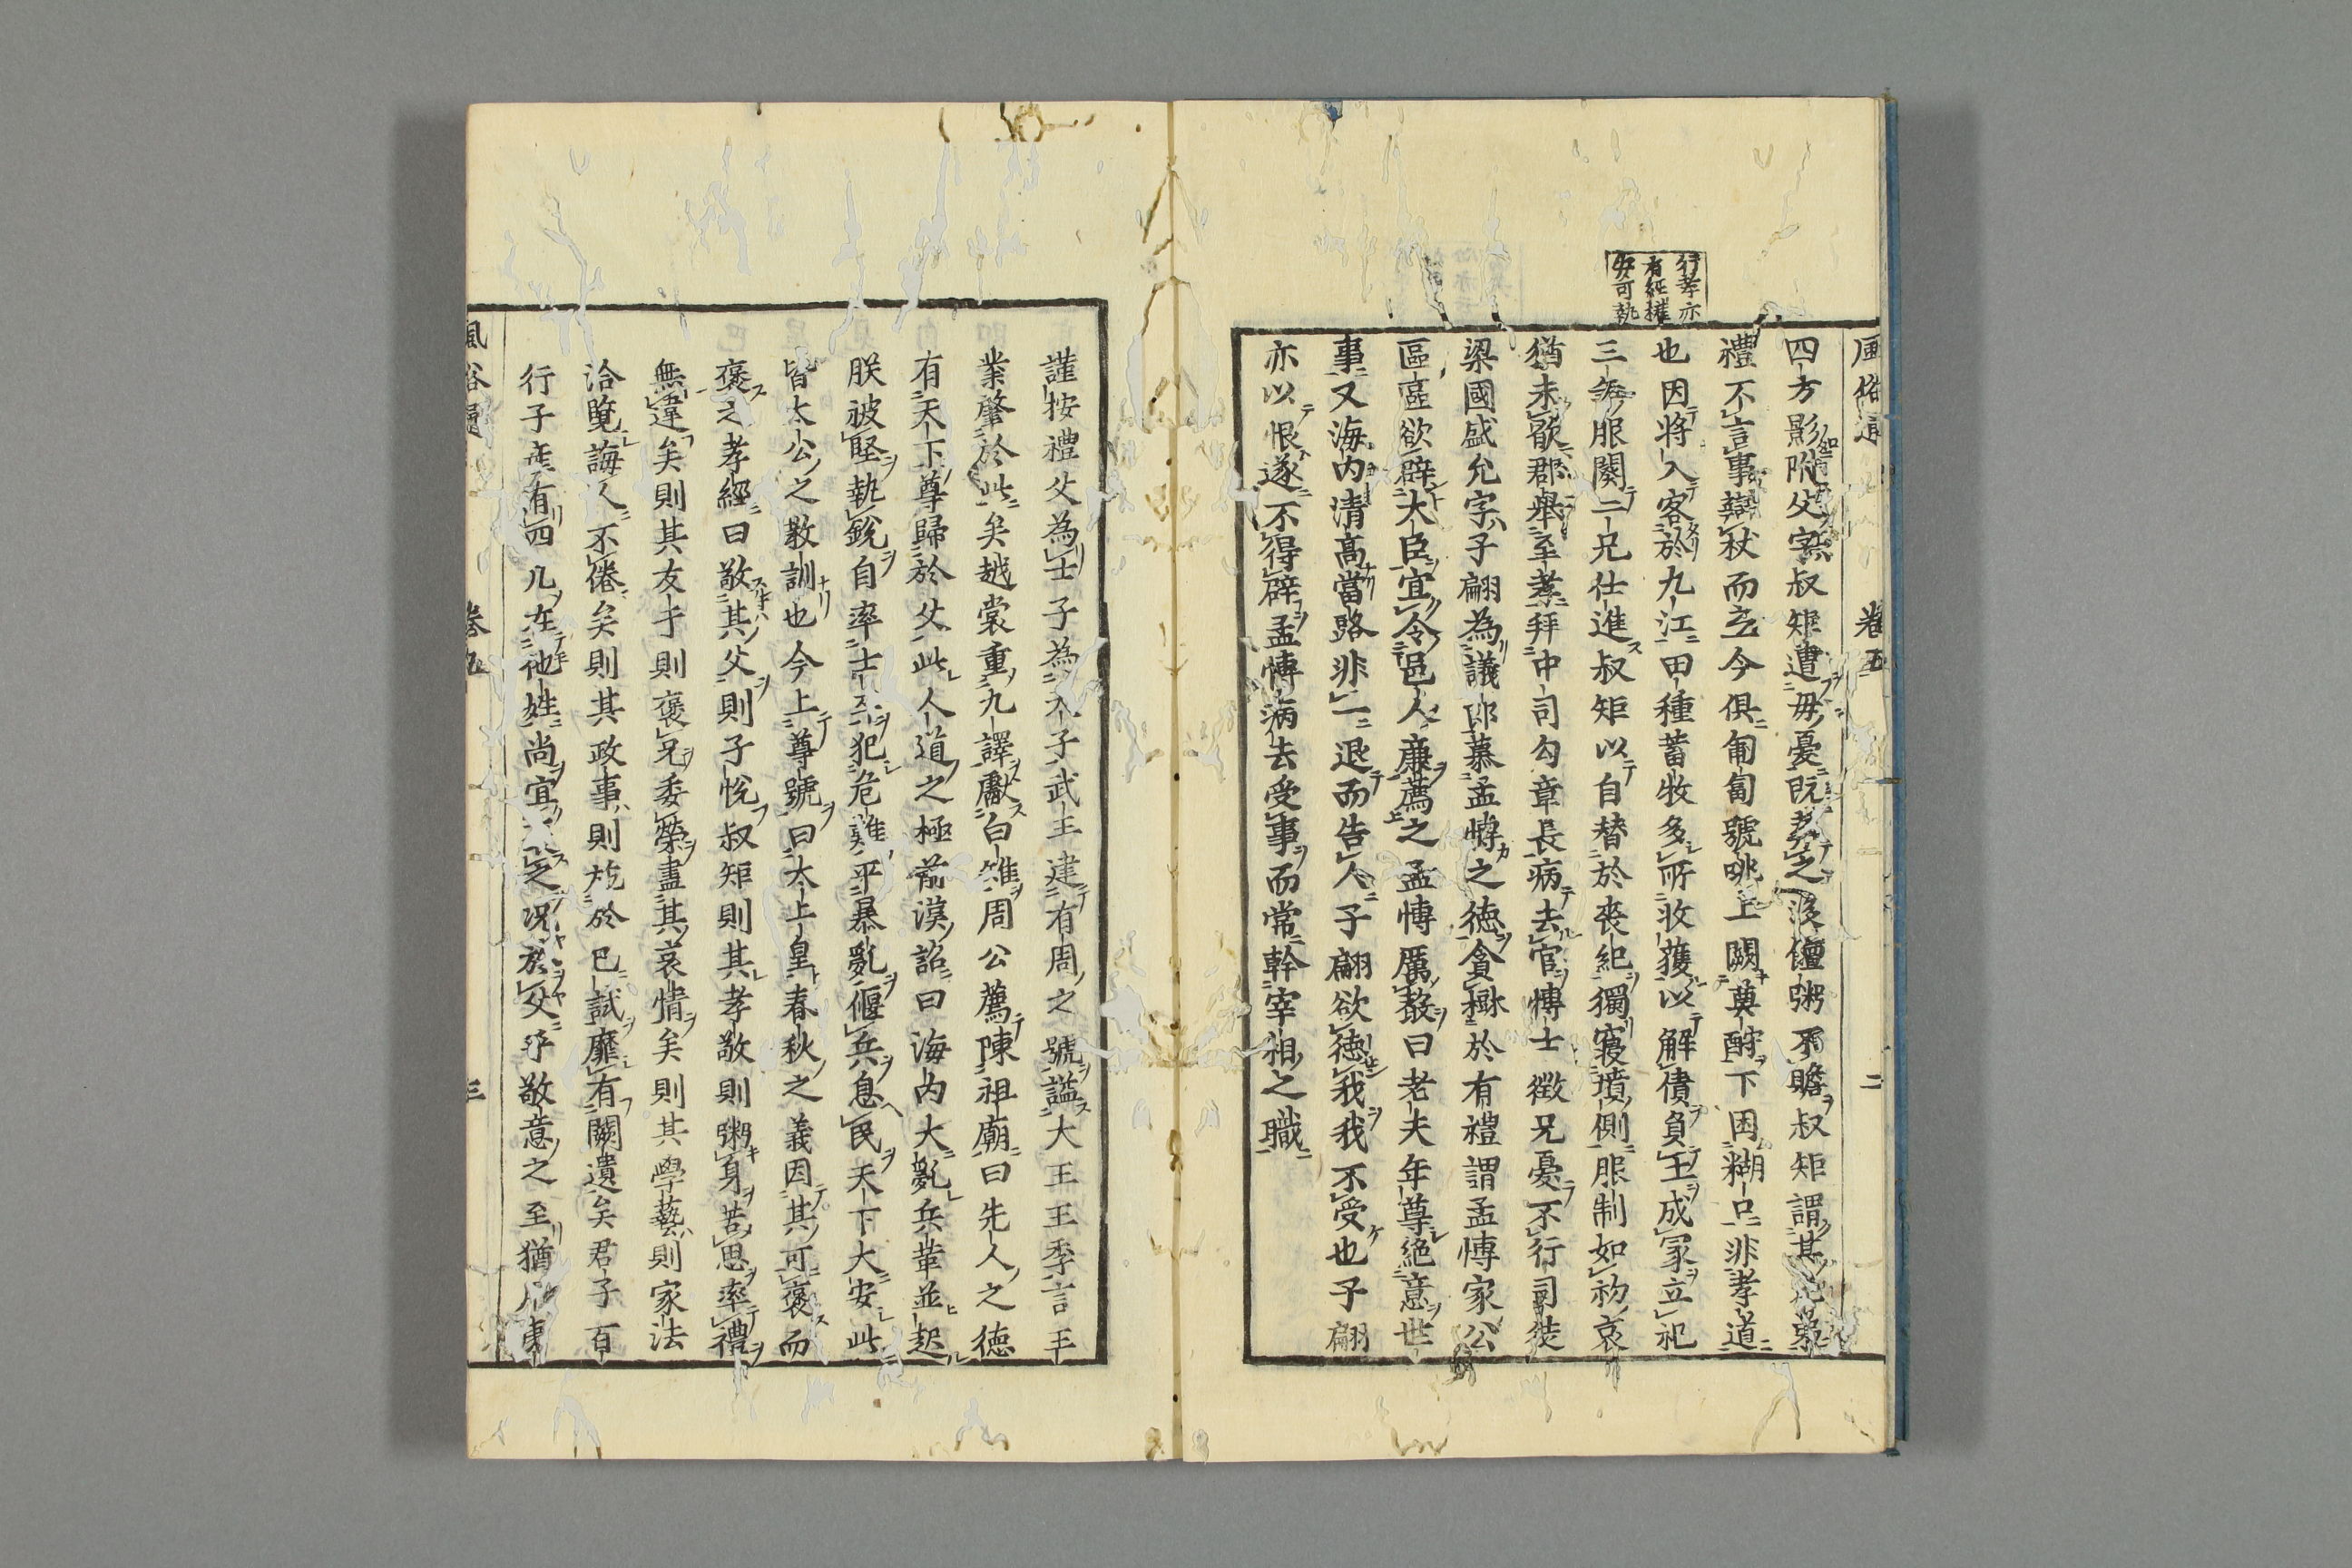 行孝亦
有經權
安可執
風俗通 卷五 二
四方影附父字叔矩遭母憂既葬之後饘粥不贍叔矩謂其兄弟
禮不言事辯杖而起今俱匍匐號咷上闕奠酹下困糊口非孝道
也因將人客於九江田種蓄牧多所收獲以解債負土成冢立祀
三年服闋二兄仕進叔矩以自替於喪紀獨寢墳側服制如初哀
猶未歇郡舉至孝拜中司勾章長病去官博士徵兄憂不行司徒
梁國盛允字子翩為議郎慕孟博之德貪樹於有禮謂孟博家公
區區欲辟大臣宜令邑人廉薦之孟博厲聲曰老夫年尊絕意世
事又海內清高當路非一退而告人子翩欲德我我不受也子翩
亦以恨遂不得辟孟博病去受事而常幹宰相之職
謹按禮父為士子為天子武王建有周之號謚大王王季言王
業肇於此矣越裳重九譯獻白雉周公薦陳祖廟曰先人之德
有天下尊歸於父此人道之極前漢詔曰海內大亂兵革並起
朕被堅執銳自率士卒犯危難平暴亂偃兵息民天下大安此
皆太公之教訓也今上尊號曰太上皇春秋之義因其可褒而
褒之孝經曰敬其父則子悅叔矩則其孝敬則粥身苦思率禮
無違矣則其友于則褒兄委榮盡其哀情矣則其學藝則家法
洽覽誨人不倦矣則其政事則於己試靡有闕遺矣君子百
行子產有四凡在他姓尚宜之況於父乎敬意之至猶
風俗通 卷五 三